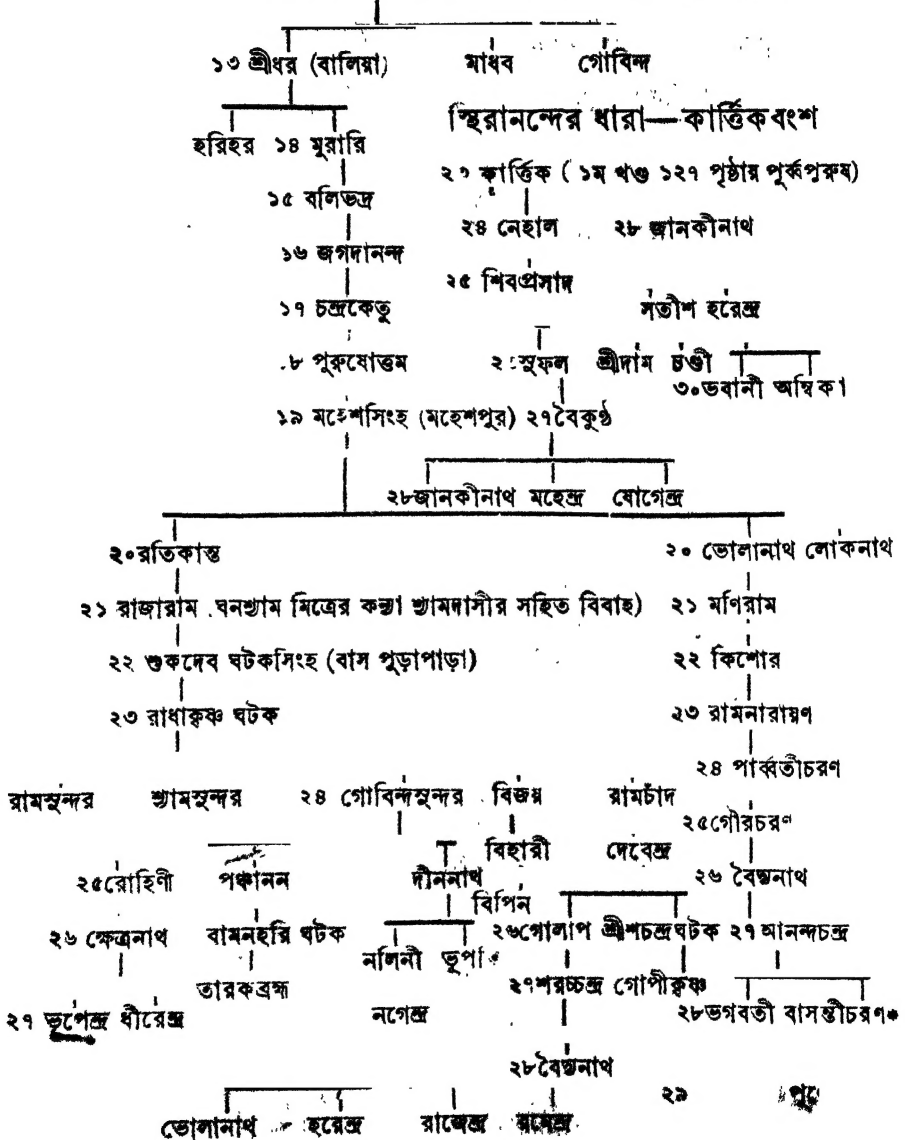 ১৩ শ্রীধর (বালিয়া) মাধব গোবিন্দ
স্থিরানন্দের ধারা—কার্ত্তিকবংশ
হরিহর ১৪ মুরারি
কার্ত্তিক (১ম খণ্ড ১২৭ পৃষ্ঠায় পূর্ব্বপুরুষ)
১৫ বলিভদ্র
২৪ নেহাল ২৮ জানকীনাথ
১৬ জগদানন্দ
২৫ শিবপ্রসাদ
১৭ চন্দ্রকেতু সতীশ হরেন্দ্র
৮ পুরুষোত্তম সুফল শ্রীদাম চণ্ডী
৩০ভবানী অম্বিকা
১৯ মহেশসিংহ (মহেশপুর) ২৭বৈকুণ্ঠ
২৮জানকীনাথ মহেন্দ্র যোগেন্দ্র
২০রতিকান্ত ২০ ভোলানাথ লোকনাথ
২১ রাজারাম ঘনশ্যাম মিত্রের কন্যা শ্যামদাসীর সহিত বিবাহ) ২১ মণিরাম
২২ শুকদেব ঘটকসিংহ (বাস পুড়াপাড়া) ২২ কিশোর
২৩ রাধাকৃষ্ণ ঘটক ২৩ রামনারায়ণ
২৪ পার্ব্বতীচরণ
রামসুন্দর শ্যামসুন্দর ২৪ গোবিন্দসুন্দর বিজয় রামচাঁদ
২৫গৌরচরণ
বিহারী দেবেন্দ্র
২৫রোহিণী পঞ্চানন দীননাথ ২৬ বৈদ্যনাথ
বিপিন
২৬ ক্ষেত্রনাথ বামনহরি ঘটক ২৬গোলাপ শ্রীশচন্দ্রঘটক ২৭ আনন্দচন্দ্র
নলিনী ভূপা
তারকব্রহ্ম ২৭শরচ্চন্দ্র গোপীকৃষ্ণ
২৭ ভূপেন্দ্র ধীরেন্দ্র নগেন্দ্র ২৮ভগবতী বাসন্তীচরণ*
২৮বৈদ্যনাথ
২৯
ভোলানাথ হরেন্দ্র রাজেন্দ্র রমেন্দ্র